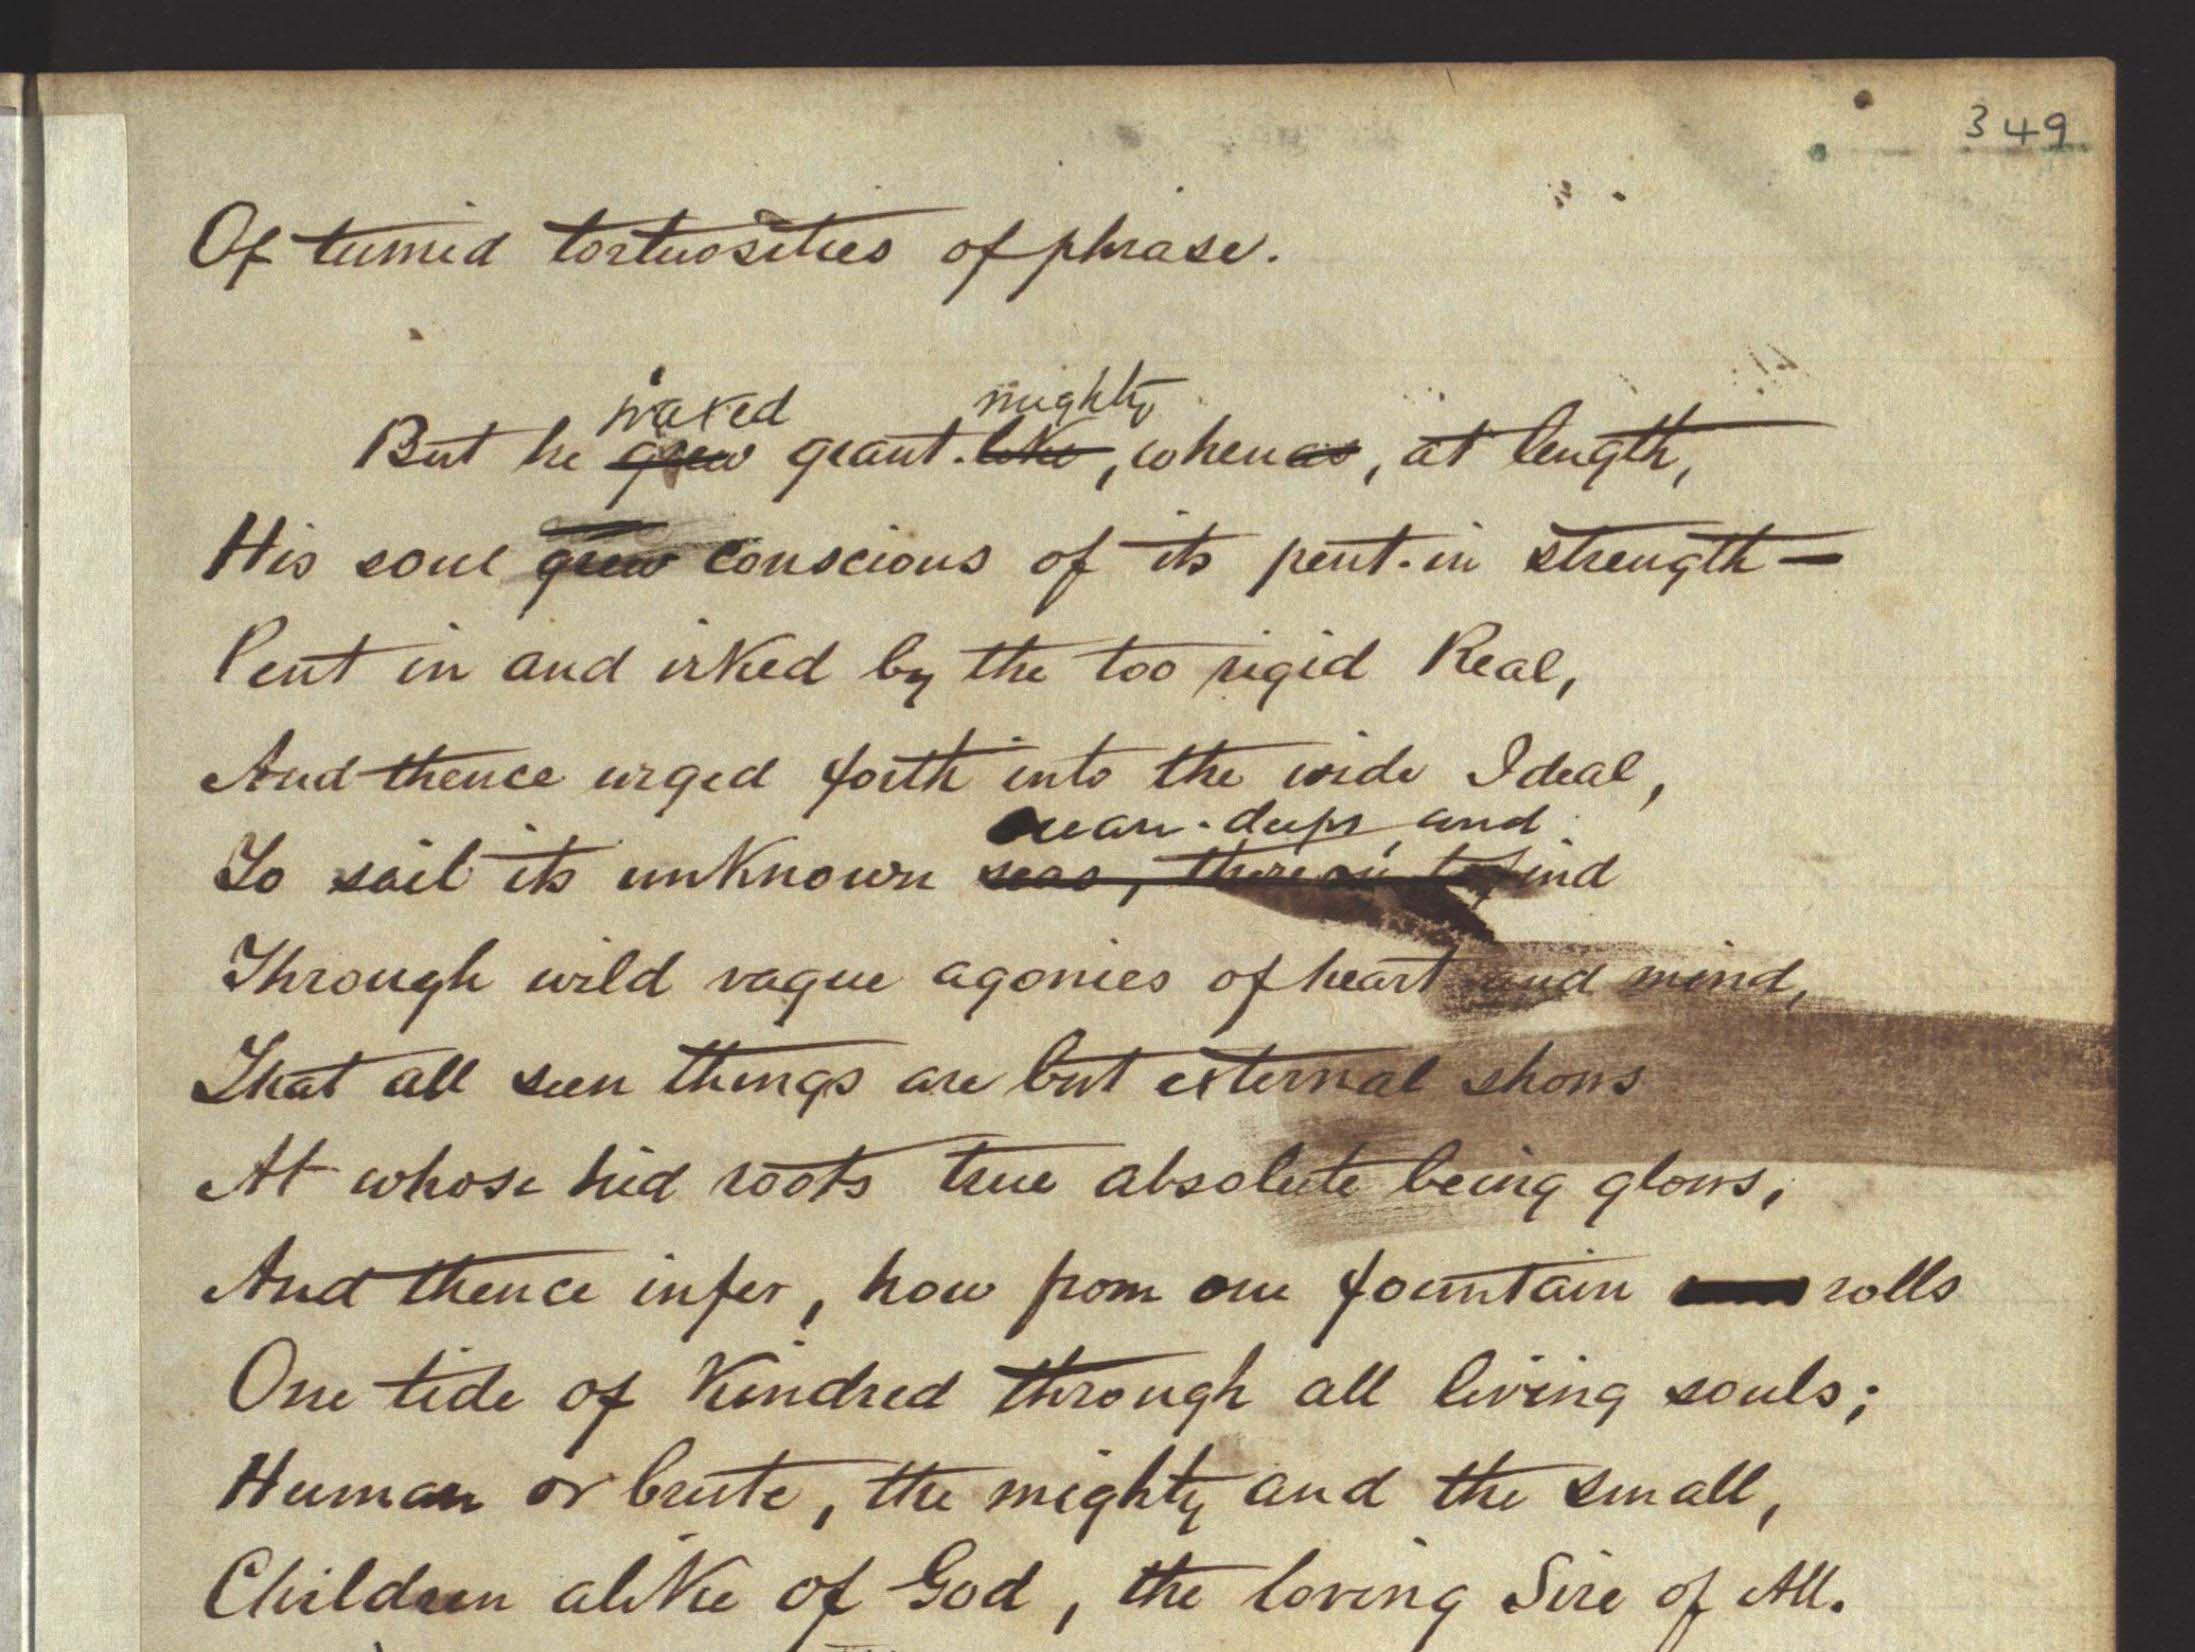 349
Of tumid tortuosities of phrase.
waxed mighty
But he grew giant-like, whenas, at length,
His soul grew conscious of its pent-in strength —
Pent in and irked by the too rigid Real,
And thence urged forth into the wide Ideal,
ocean-deeps, and
To sail its unknown seas, thereon to find
Through wild vague agonies of heart and mind,
That all seen things are but external shows
At whose hid roots true absolute being glows,
And thence infer, how from one fountain rolls
One tide of kindred through all living souls;
Human or brute, the mighty and the small,
Children alike of God, the loving Sire of All.